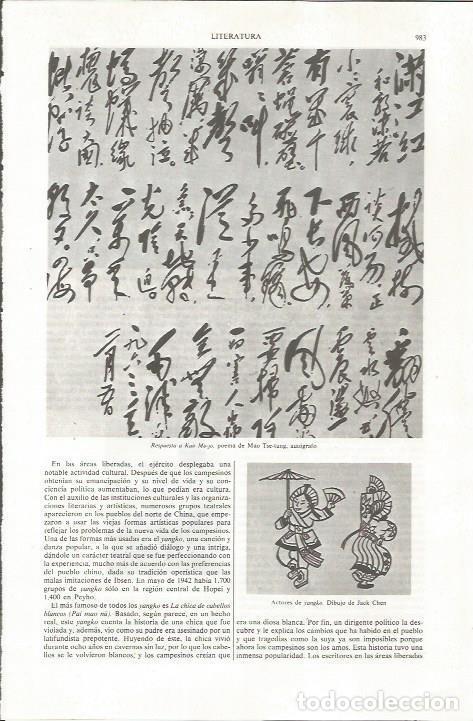 LITERATURA
983
满江红
和郭沫若
小小寰球，
有几个
苍蝇碰壁。
嗡嗡叫，
几声
凄厉
声抽泣。
蚂蚁缘
槐
大国
撼
树
谈何易
正
西风落叶
下长安
飞鸣镝
多少事
从
来
急
天地转
光阴迫
一万年
太久
只争
朝夕
四海
翻腾
云水怒
五洲
震荡
风雷
要扫除
一切害人虫
全无敌
一九六三
Respuesta a Kuo Mo-jo, poema de Mao Tse-tung, autógrafo
En las áreas liberadas, el ejército desplegaba una
notable actividad cultural. Después de que los campesinos
obtenían su emancipación y su nivel de vida y su con-
ciencia política aumentaban, lo que pedían era cultura.
Con el auxilio de las instituciones culturales y las organiza-
ciones literarias y artísticas, numerosos grupos teatrales
aparecieron en los pueblos del norte de China, que empe-
zaron a usar las viejas formas artísticas populares para
reflejar los problemas de la nueva vida de los campesinos.
Una de las formas más usadas era el yangko, una canción y
danza popular, a la que se añadió diálogo y una intriga,
dándole un carácter teatral que se fue perfeccionando con
la experiencia, mucho más de acuerdo con las preferencias
del pueblo chino, dada su tradición operística que las
malas imitaciones de Ibsen. En mayo de 1942 había 1.700
grupos de yangko sólo en la región central de Hopei y
1.400 en Peyho.
El más famoso de todos los yangko es La chica de cabellos
blancos (Pai mao nü). Basado, según parece, en un hecho
real, este yangko cuenta la historia de una chica que fue
violada y, además, vio como su padre era asesinado por un
latifundista prepotente. Huyendo de éste, la chica vivió
durante ocho años en cavernas sin luz, por lo que los cabe-
llos se le volvieron blancos, y los campesinos creían que
Actores de yangko. Dibujo de Jack Chen
era una diosa blanca. Por fin, un dirigente político la des-
cubre y le explica los cambios que ha habido en el pueblo
y que tragedias como la suya ya son imposibles porque
ahora los campesinos son los amos. Esta historia tuvo una
inmensa popularidad. Los escritores en las áreas liberadas
todocoleccion